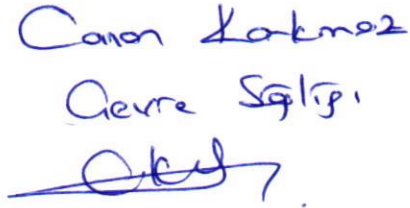 Canan Korkmaz
Çevre Sağlığı